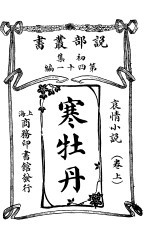 說部叢書
初集
第四十一編
哀情小說
(卷上)
寒牡丹
上海
商務印書館發行